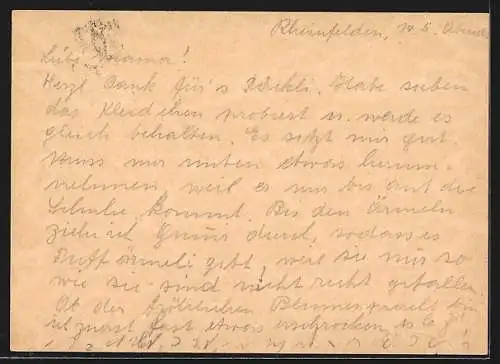 Rheinfelden, 10. 5. Abends
Liebe Mama!
Herzl. Dank für's Päckli. Habe soeben
das Kleidchen probiert u. werde es
gleich behalten. Es sitzt mir gut
Muss nur unten etwas herum-
nehmen, weil es mir bis auf die
Schuhe kommt. Bei den Ärmeln
ziehe ich Gummi durch, sodass es
Puffärmeli gibt, weil sie mir so
wie sie sind nicht recht gefallen!
Ob der Blumenpracht bin
ich zuerst fast etwas erschrocken, es